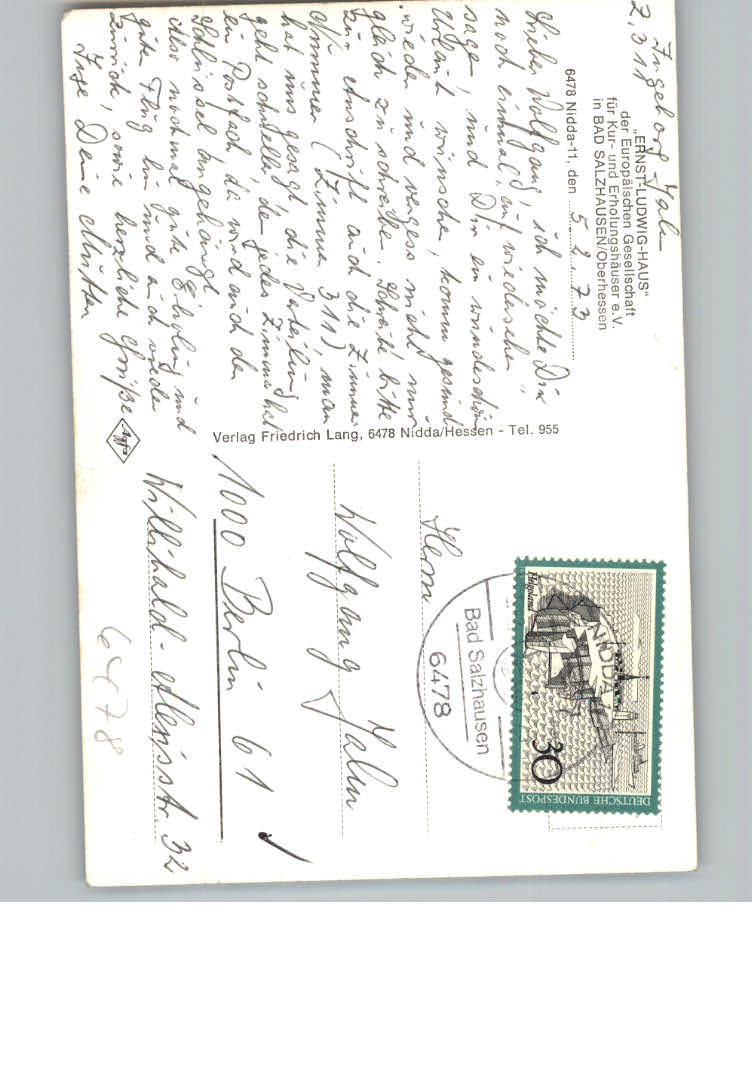 Ingeborg Jahn
Z. 311
„ERNST-LUDWIG-HAUS“
der Europäischen Gesellschaft
für Kur- und Erholungshäuser e. V.
in BAD SALZHAUSEN/Oberhessen
6478 Nidda-11, den 5. 2. 73
Lieber Wolfgang, ich möchte Dir
noch einmal „auf wiedersehen“
sagen, und Dir ein wunderschön
Urlaub wünschen, komm gesund
wieder und vergess nicht mir
gleich zu schreiben. Schreibe bitte
zur Anschrift auch die Zimmer
Nummer (Zimmer 311) man
hat uns gesagt die Verteilung
geht schneller, den jedes Zimmer hat
ein Postfach, da wird auch der
Schlüssel drangehängt
Also nochmal gute Erholung und
guten Flug hin und auch wieder
zurück, sowie herzliche Grüße
Inge Deine Mutter
Agfa
Verlag Friedrich Lang, 6478 Nidda/Hessen - Tel. 955
Herrn
Wolfgang Jahn
1000 Berlin 61
Willibald-Alexisstr. 32
6478
NIDDA 1
Bad Salzhausen
6478
Helgoland
30
DEUTSCHE BUNDESPOST